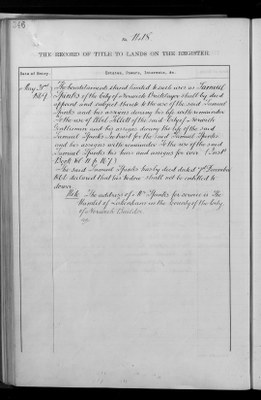 No. 1118
THE RECORD OF TITLE TO LANDS ON THE REGISTER.
Date of Entry.
Estates, Powers, Interests, &c.
May 31st
The hereditaments stand limited to such uses as Samuel
of the City of Norwich by deed
appoint and subject thereto to the use of the said Samuel
and his assigns during his life with remainder
To the use of of the said City of Norwich
Gentleman and his assigns during the life of the said
Samuel In trust for the said Samuel
and his assigns with remainder To the use of the said
Samuel his heirs and assigns for ever.
Book Vol. 11 p. 167)
The said Samuel by deed dated 7th December
declared that his widow shall not be entitled to
dower.
Note. The address of Mr. for service is The
Hamlet of in the County of the City
of Norwich Builder.